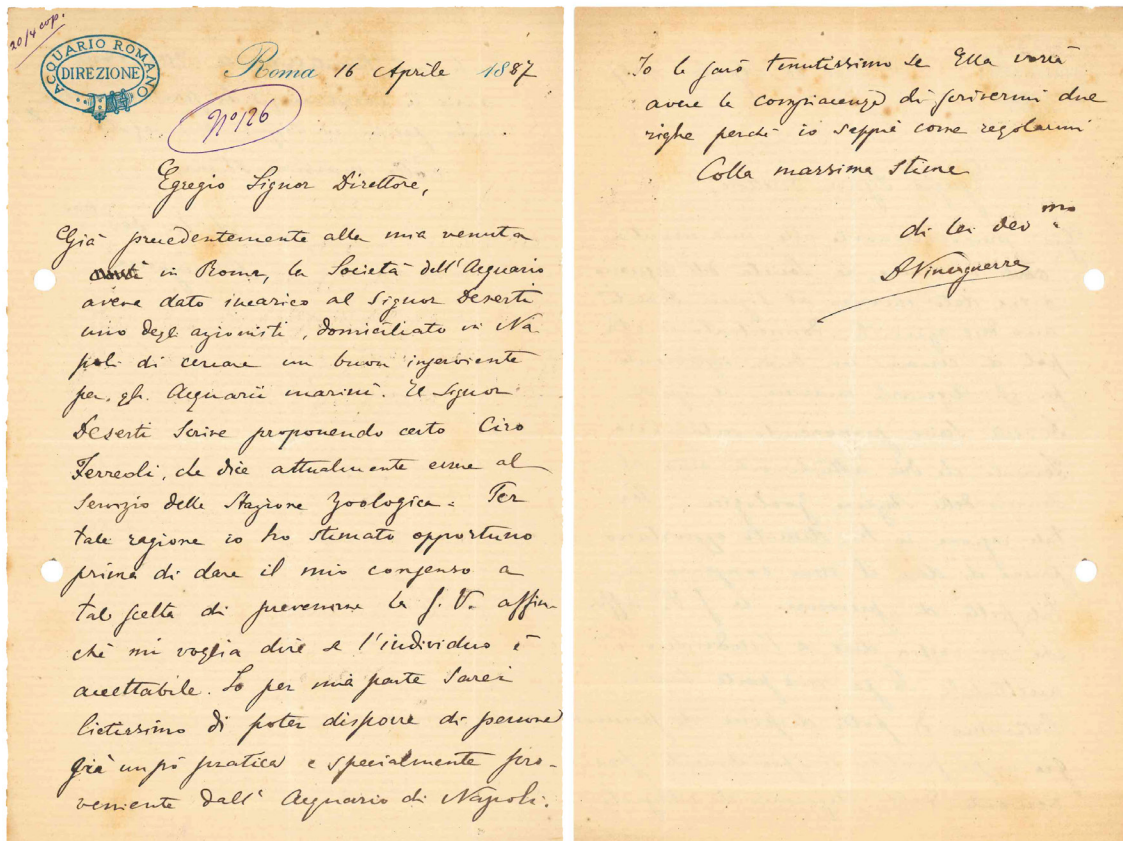 20/4 cop.
ACQUARIO ROMANO
DIREZIONE
Roma 16 Aprile 1887
No 126
Egregio Signor Direttore,
Già precedentemente alla mia venuta
in Roma, la Società dell'Acquario
aveva dato incarico al Signor Deserti
uno degli azionisti, domiciliato in Na-
poli di cercare un buon inserviente
per gli Acquarii marini. Il Signor
Deserti scrive proponendo certo Ciro
Ferreoli, che dice attualmente essere al
servizio della Stazione Zoologica. Per
tale ragione io ho stimato opportuno
prima di dare il mio consenso a
tale scelta di prevenirne la S. V. affin-
chè mi voglia dire se l'individuo è
accettabile. Io per mia parte sarei
lietissimo di poter disporre di persona
già un pò pratica e specialmente pro-
veniente dall' Acquario di Napoli.
Io le sarò tenutissimo se Ella vorrà
avere la compiacenza di scrivermi due
righe perchè io sappia come regolarmi
Colla massima stima
di Lei devmo
D Vinciguerra